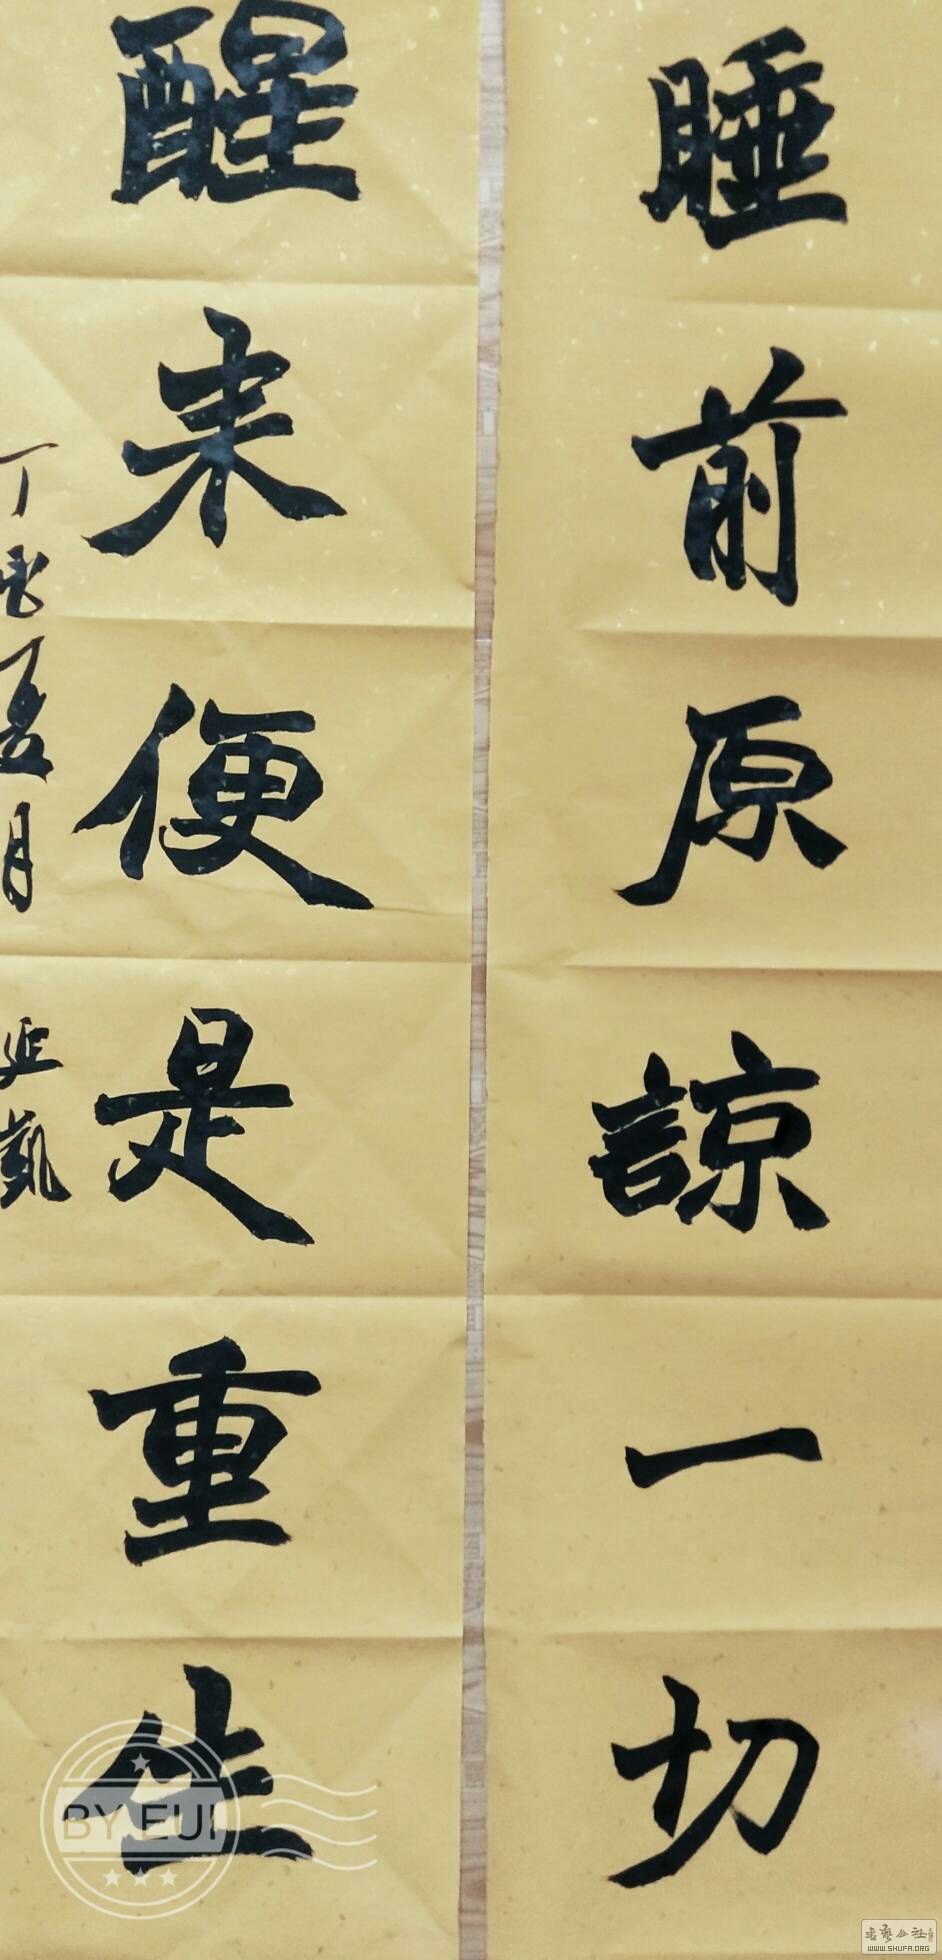 睡前原諒一切
醒来便是重生
丁酉夏月 延凱
BY EUI
书艺公社
WWW.SHUFA.ORG